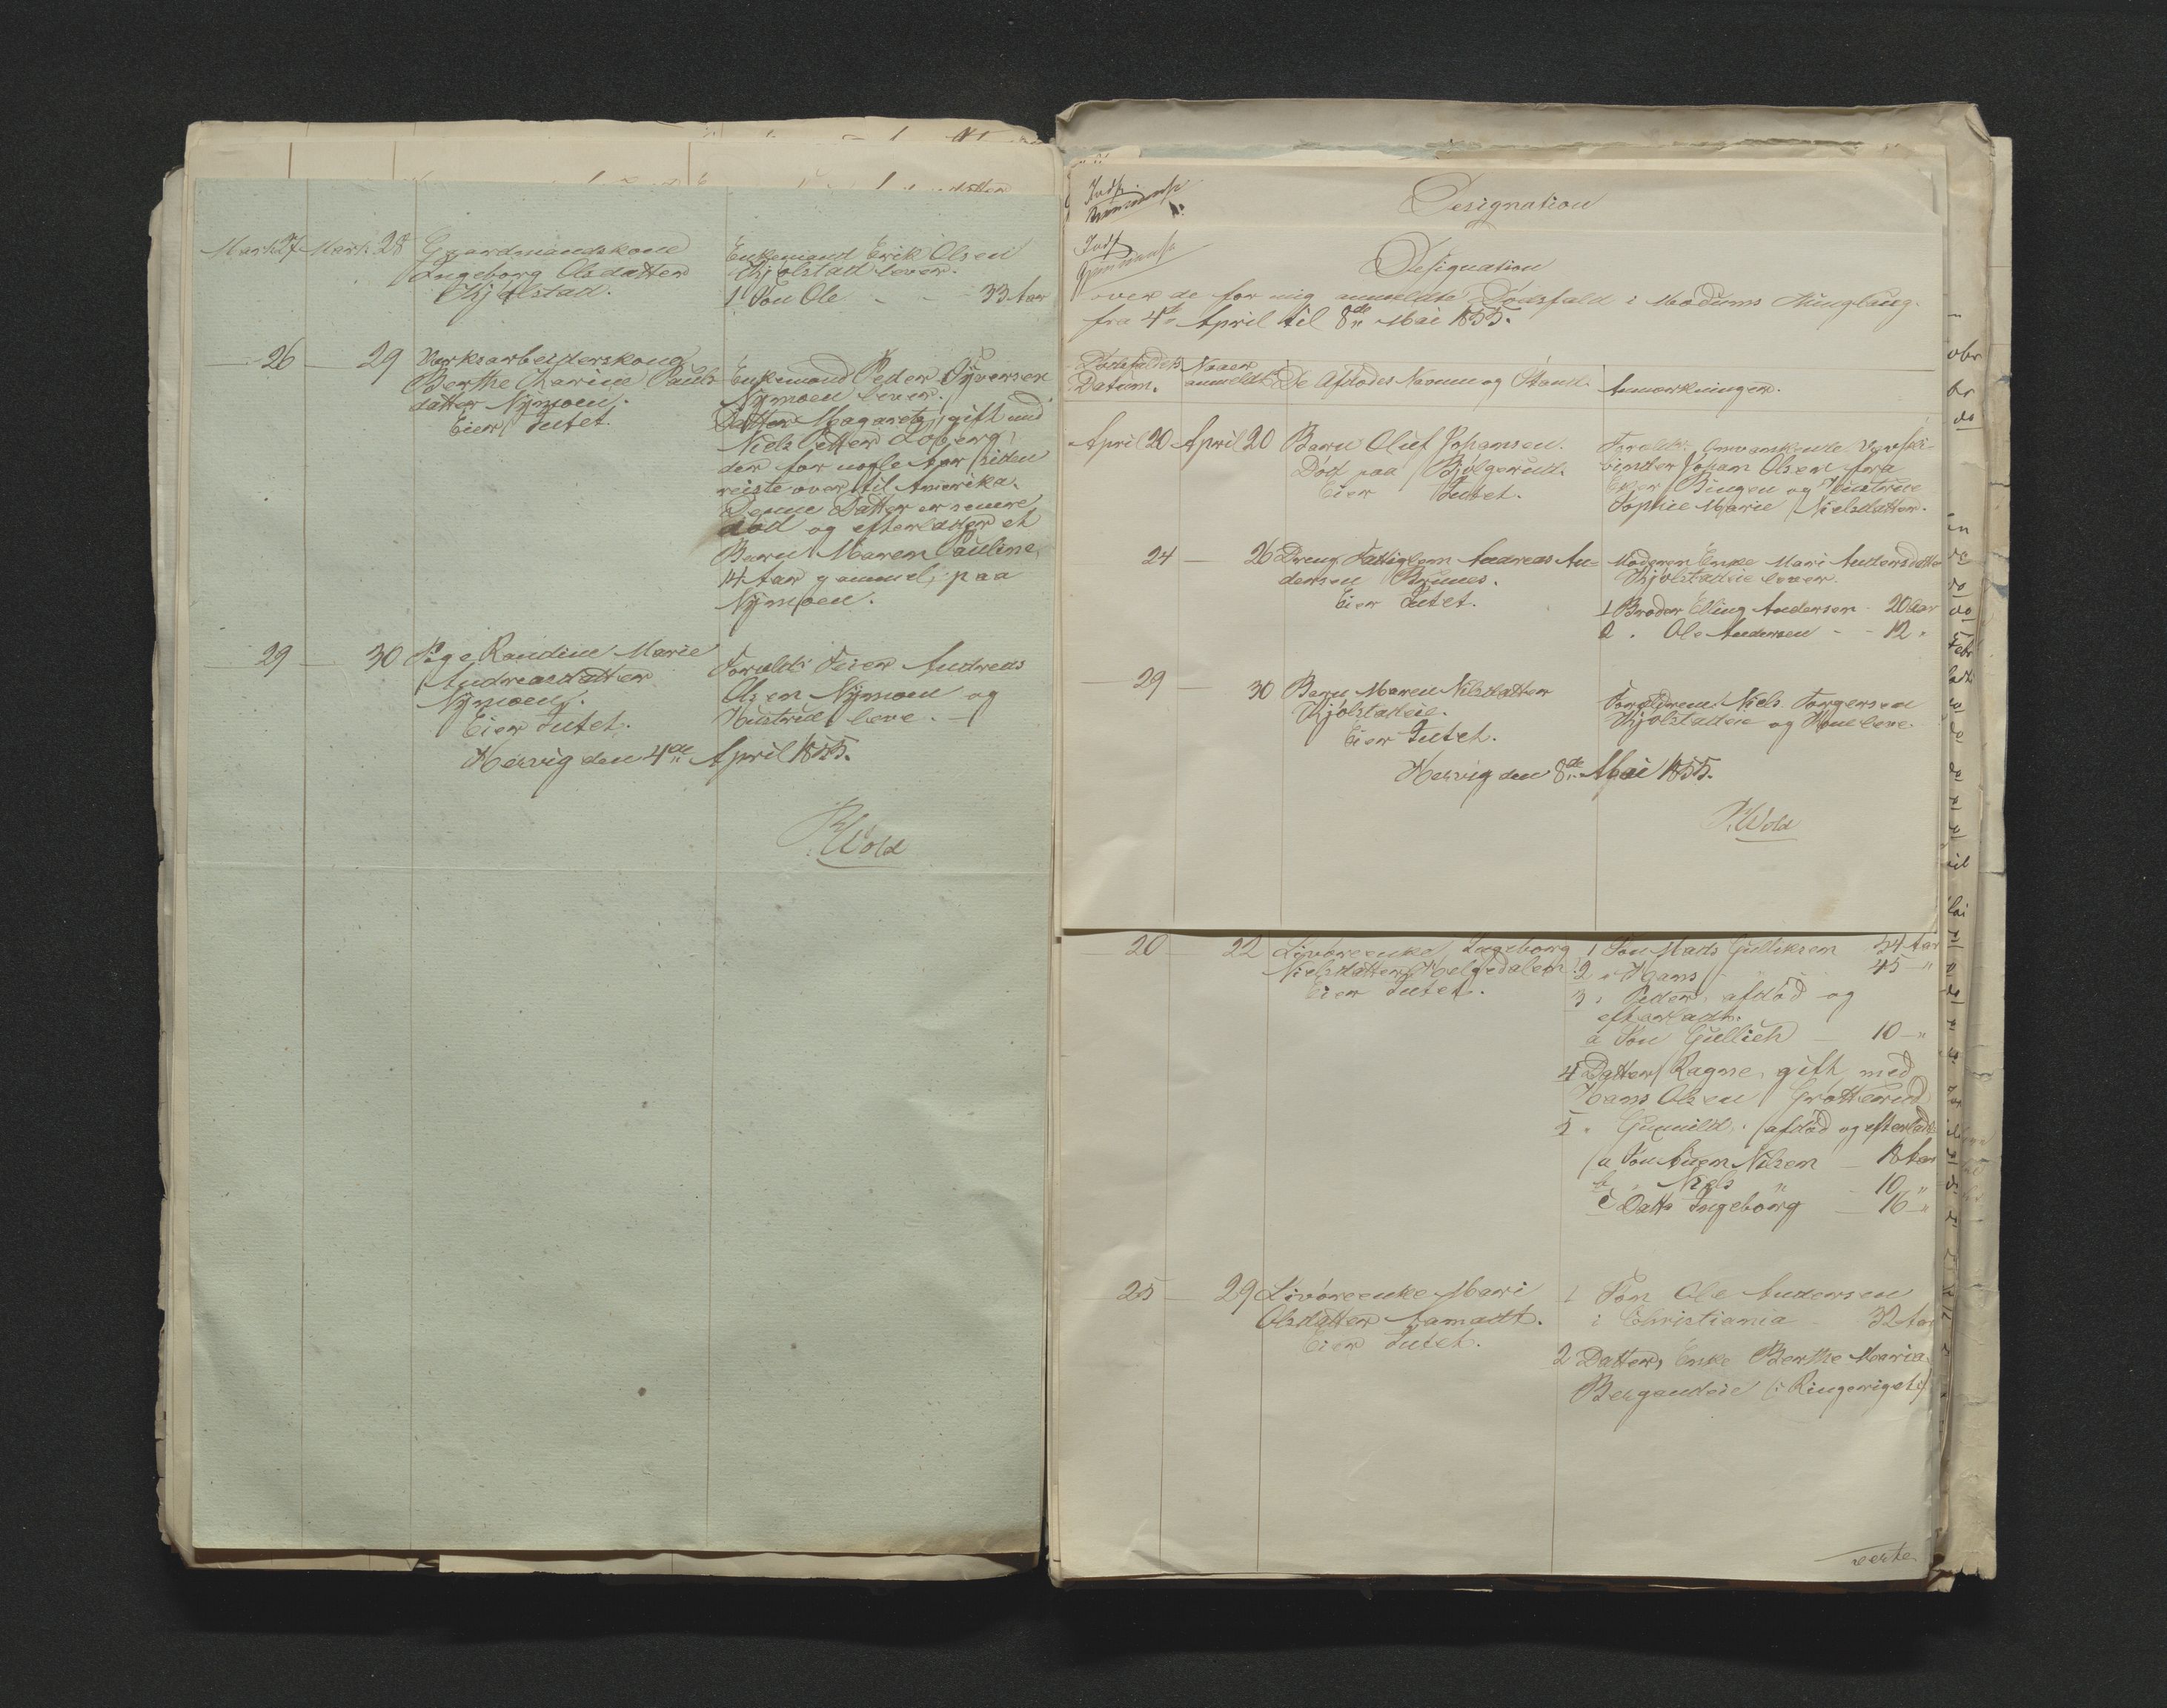 Marts 27 Marts 28 Gaardmandskone
Ingeborg Olsdatter
Kjølstad.
Enkemand Erik Olsen
Kjølstad lever.
1 Søn Ole - - 33 Aar
26 29 Værksarbeiderskone
Berthe Karine Pauls
datter Nymoen.
Eier Intet.
Enkemand Peder Syversen
Nymoen lever.
Datter Magarete, gift med
Niels Petter Loberg,
der for nogle Aar siden
reiste over til Amerika.
Denne Datter er senere
død og efterladter et
Barn Maren Pauline,
14 Aar gammel, paa
Nymoen.
29 30 Pige Randine Marie
Andreasdatter
Nymoen.
Eier Intet.
Foreldr:
Andreas
Olsen Nymoen og
Hustrue leve.
Hervig den 4de April 1855.
P. Wold
Designation
Designation
over de for mig anmeldte Dødsfald i Modums Thinglaug
fra 4de April til 8de Mai 1855.
Dødsfaldets
Datum.
Naar
anmeldt
De Afdødes Navne og Stand.
Anmærkninger.
April 20 April 20 Barn Oluf Johansen.
Død paa
Eier Intet.
Johan Olsen fra
Eker Bingen og Hustrue
Sophie Marie Nielsdatter.
24 26 Dreng, Fattiglem Andreas An=
dersen
Eier Intet.
Moderen Enke Mari Andersdatter
Kjølstadeie lever.
1 Broder Elling Andersen - 20 Aar
2 " Ole Andersen - - 12 "
29 30 Barn Maren Nilsdatter
Kjølstadeie.
Eier Intet.
Forældrene Niels Torgersen
Kjølstadeie og Kone leve.
Hervig den 8de Mai 1855.
P. Wold
20 22 Livøreenke Ingeborg
Nielsdatter Helgedalen
Eier Intet.
1 Søn Mads Gulliksen 54 Aar
2 " Hans " 45 "
3 " Peder, afdød og
efterladt:
a Søn Gullich 10 "
4 Datter Ragne, gift med
Hans Olsen Grøtterud
5 " Gunnild, afdød og efterladt
a Søn Nilsen 18 Aar
b " Niels " 10 "
c Datt: Ingeborg 16 "
25 29 Livøreenke Mari
Olsdatter Aamodt.
Eier Intet.
1 Søn Ole Andersen
i Christiania 32 Aar
2 Datter, Enke Berthe Maria
Bergandeie (: Ringeriget :)
verte